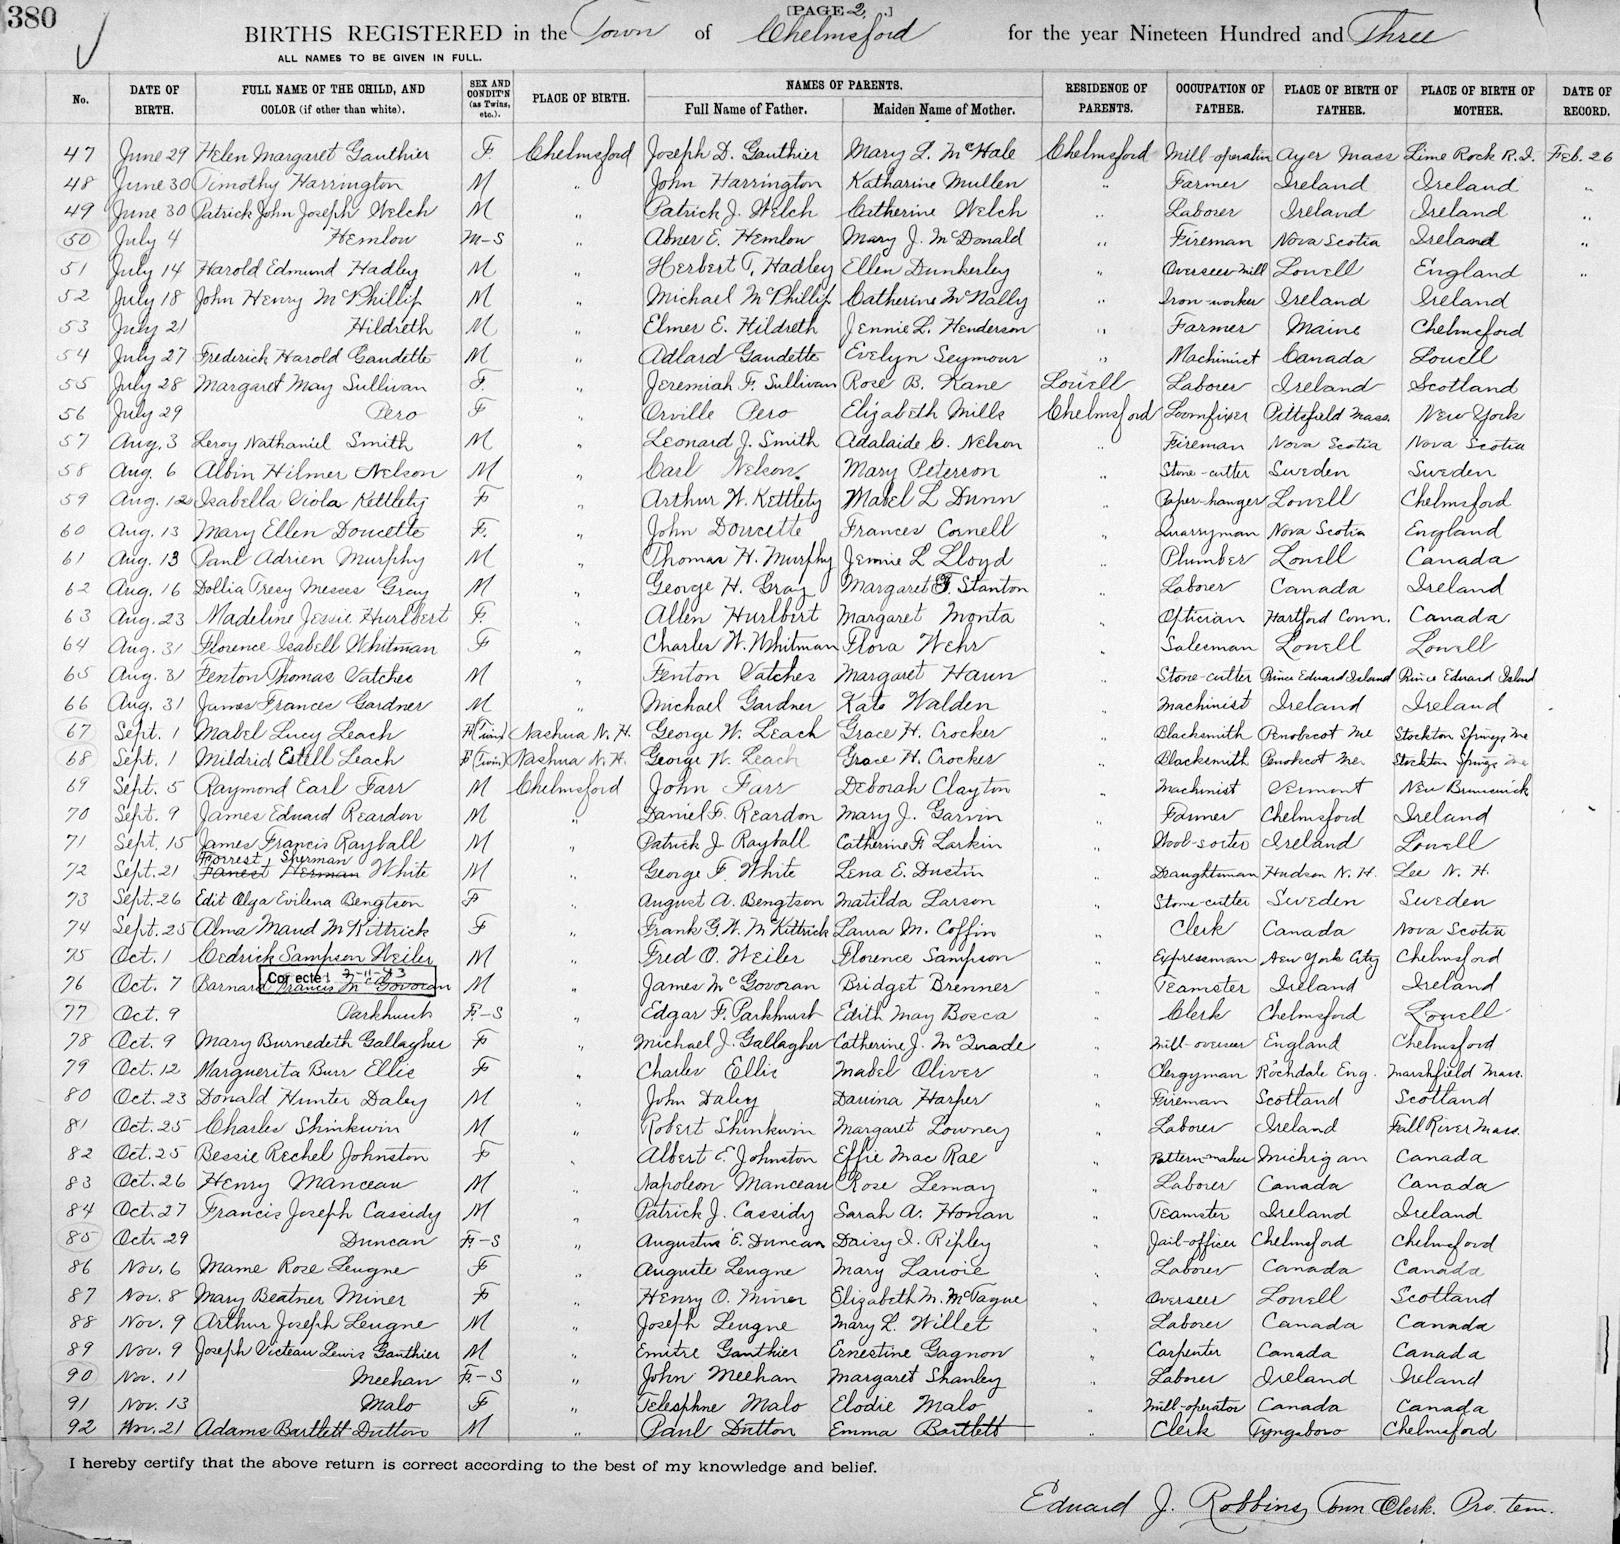 380
[PAGE 2.]
BIRTHS REGISTERED in the Town of Chelmsford for the year Nineteen Hundred and Three
ALL NAMES TO BE GIVEN IN FULL.
No. DATE OF BIRTH. FULL NAME OF THE CHILD, AND COLOR (if other than white). SEX AND CONDIT'N (as Twins, etc.). PLACE OF BIRTH. NAMES OF PARENTS. Full Name of Father. Maiden Name of Mother. RESIDENCE OF PARENTS. OCCUPATION OF FATHER. PLACE OF BIRTH OF FATHER. PLACE OF BIRTH OF MOTHER. DATE OF RECORD.
47 June 29 Helen Margaret Gauthier F. Chelmsford Joseph D. Gauthier Mary L. McHale Chelmsford Mill-operative Ayer Mass Lime Rock R.I. Feb. 26
48 June 30 Timothy Harrington M " John Harrington Katharine Mullen " Farmer Ireland Ireland "
49 June 30 Patrick John Joseph Welch M " Patrick J. Welch Catherine Welch " Laborer Ireland Ireland "
50 July 4 Hemlow M-S " Abner E. Hemlow Mary J. McDonald " Fireman Nova Scotia Ireland "
51 July 14 Harold Edmund Hadley M " Herbert T. Hadley Ellen Dunkerley " Overseer Mill Lowell England "
52 July 18 John Henry McPhillip M " Michael McPhillip Catherine McNally " Iron-worker Ireland Ireland
53 July 21 Hildreth M " Elmer E. Hildreth Jennie L. Henderson " Farmer Maine Chelmsford
54 July 27 Frederick Harold Gaudette M " Adlard Gaudette Evelyn Seymour " Machinist Canada Lowell
55 July 28 Margaret May Sullivan F. " Jeremiah F. Sullivan Rose B. Kane Lowell Laborer Ireland Scotland
56 July 29 Pero F " Orville Pero Elizabeth Mills Chelmsford Loomfixer Pittsfield Mass. New York
57 Aug. 3 Leroy Nathaniel Smith M " Leonard J. Smith Adalaide C. Nelson " Fireman Nova Scotia Nova Scotia
58 Aug. 6 Albin Hilmer Nelson M " Carl Nelson Mary Peterson " Stone-cutter Sweden Sweden
59 Aug. 12 Isabella Viola Kettlety F " Arthur W. Kettlety Mabel L Dunn " Paper-hanger Lowell Chelmsford
60 Aug. 13 Mary Ellen Doucette F. " John Doucette Frances Cornell " Quarryman Nova Scotia England
61 Aug. 13 Paul Adrien Murphy M " Thomas H. Murphy Jennie L Lloyd " Plumber Lowell Canada
62 Aug. 16 Dollia Tresy Gray M " George H. Gray Margaret F. Stanton " Laborer Canada Ireland
63 Aug. 23 Madeline Jessie Hurlbert F. " Allen Hurlbert Margaret Monta " Optician Hartford Conn. Canada
64 Aug. 31 Florence Isabell Whitman F " Charles W. Whitman Flora Wehr " Salesman Lowell Lowell
65 Aug. 31 Fenton Thomas Vatches M " Fenton Vatches Margaret Haun " Stone-cutter Prince Edward Island Prince Edward Island
66 Aug. 31 James Frances Gardner M " Michael Gardner Kate Walden " Machinist Ireland Ireland
67 Sept. 1 Mabel Lucy Leach F (Twin) Nashua N.H. George W. Leach Grace H. Crocker " Blacksmith Penobscot Me Stockton Springs Me
68 Sept. 1 Mildrid Estell Leach F (Twin) Nashua N.H. George W. Leach Grace H. Crocker " Blacksmith Penobscot Me. Stockton Springs Me
69 Sept. 5 Raymond Earl Farr M Chelmsford John Farr Deborah Clayton " Machinist Vermont New Brunswick
70 Sept. 9 James Edward Reardon M " Daniel F. Reardon Mary J. Garvin " Farmer Chelmsford Ireland
71 Sept. 15 James Francis Rayball M " Patrick J Rayball Catherine F. Larkin " Wool-sorter Ireland Lowell
Forrest Sherman
72 Sept. 21 Forrest Herman White M " George F. White Lena E. Dustin " Draughtman Hudson N.H. Lee N.H.
73 Sept. 26 Edit Olga Evilena Bengtson F " August A. Bengtson Matilda Larson " Stone-cutter Sweden Sweden
74 Sept. 25 Alma Maud McKittrick F " Frank G.W. McKittrick Laura M. Coffin " Clerk Canada Nova Scotia
75 Oct. 1 Cedrick Sampson Weiler M " Fred O. Weiler Florence Sampson " Expressman New York City Chelmsford
Corrected 2-11-43
76 Oct. 7 Barnard Francis McGovoran M " James McGovoran Bridget Brenner " Teamster Ireland Ireland
77 Oct. 9 Parkhurst F.-S " Edgar F. Parkhurst Edith May Bosca " Clerk Chelmsford Lowell
78 Oct. 9 Mary Burnedeth Gallagher F " Michael J. Gallagher Catherine J. McQuade " Mill-overseer England Chelmsford
79 Oct. 12 Marguerita Burr Ellis F " Charles Ellis Mabel Oliver " Clergyman Rochdale Eng. Marshfield Mass.
80 Oct. 23 Donald Hunter Daley M " John Daley Davina Harper " Fireman Scotland Scotland
81 Oct. 25 Charles Shinkwin M " Robert Shinkwin Margaret Lowney " Laborer Ireland Fall River Mass.
82 Oct. 25 Bessie Rechel Johnston F " Albert E. Johnston Effie Mac Rae " Pattern-maker Michigan Canada
83 Oct. 26 Henry Manceau M " Napoleon Manceau Rose Lemay " Laborer Canada Canada
84 Oct. 27 Francis Joseph Cassidy M " Patrick J. Cassidy Sarah A. Honan " Teamster Ireland Ireland
85 Oct. 29 Duncan F.-S " Augustus E. Duncan Daisy I. Ripley " Jail-officer Chelmsford Chelmsford
86 Nov. 6 Mame Rose Leugne F " Auguste Leugne Mary Lavoie " Laborer Canada Canada
87 Nov. 8 Mary Beatner Miner F " Henry O. Miner Elizabeth M. McTague " Overseer Lowell Scotland
88 Nov. 9 Arthur Joseph Leugne M " Joseph Leugne Mary L. Willet " Laborer Canada Canada
89 Nov. 9 Joseph Victeau Lewis Gauthier M " Emitre Gauthier Ernestine Gagnon " Carpenter Canada Canada
90 Nov. 11 Meehan F.-S " John Meehan Margaret Shanley " Laborer Ireland Ireland
91 Nov. 13 Malo F " Telesphne Malo Elodie Malo " Mill-operator Canada Canada
92 Nov. 21 Adams Bartlett Dutton M " Paul Dutton Emma Bartlett " Clerk Tyngsboro Chelmsford
I hereby certify that the above return is correct according to the best of my knowledge and belief.
Edward J. Robbins, Town Clerk. Pro. tem.